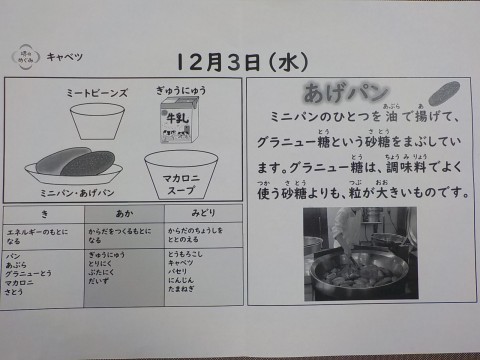 堺のめぐみ
キャベツ
12月3日（水）
ミートビーンズ
ぎゅうにゅう
牛乳
ミニパン・あげパン
マカロニ
スープ
き
あか
みどり
エネルギーのもとに
なる
からだをつくるもとに
なる
からだのちょうしを
ととのえる
パン
あぶら
グラニューとう
マカロニ
さとう
ぎゅうにゅう
とりにく
ぶたにく
だいず
とうもろこし
キャベツ
パセリ
にんじん
たまねぎ
あげパン
ミニパンのひとつを油で揚げて、
グラニュー糖という砂糖をまぶしてい
ます。グラニュー糖は、調味料でよく
使う砂糖よりも、粒が大きいものです。